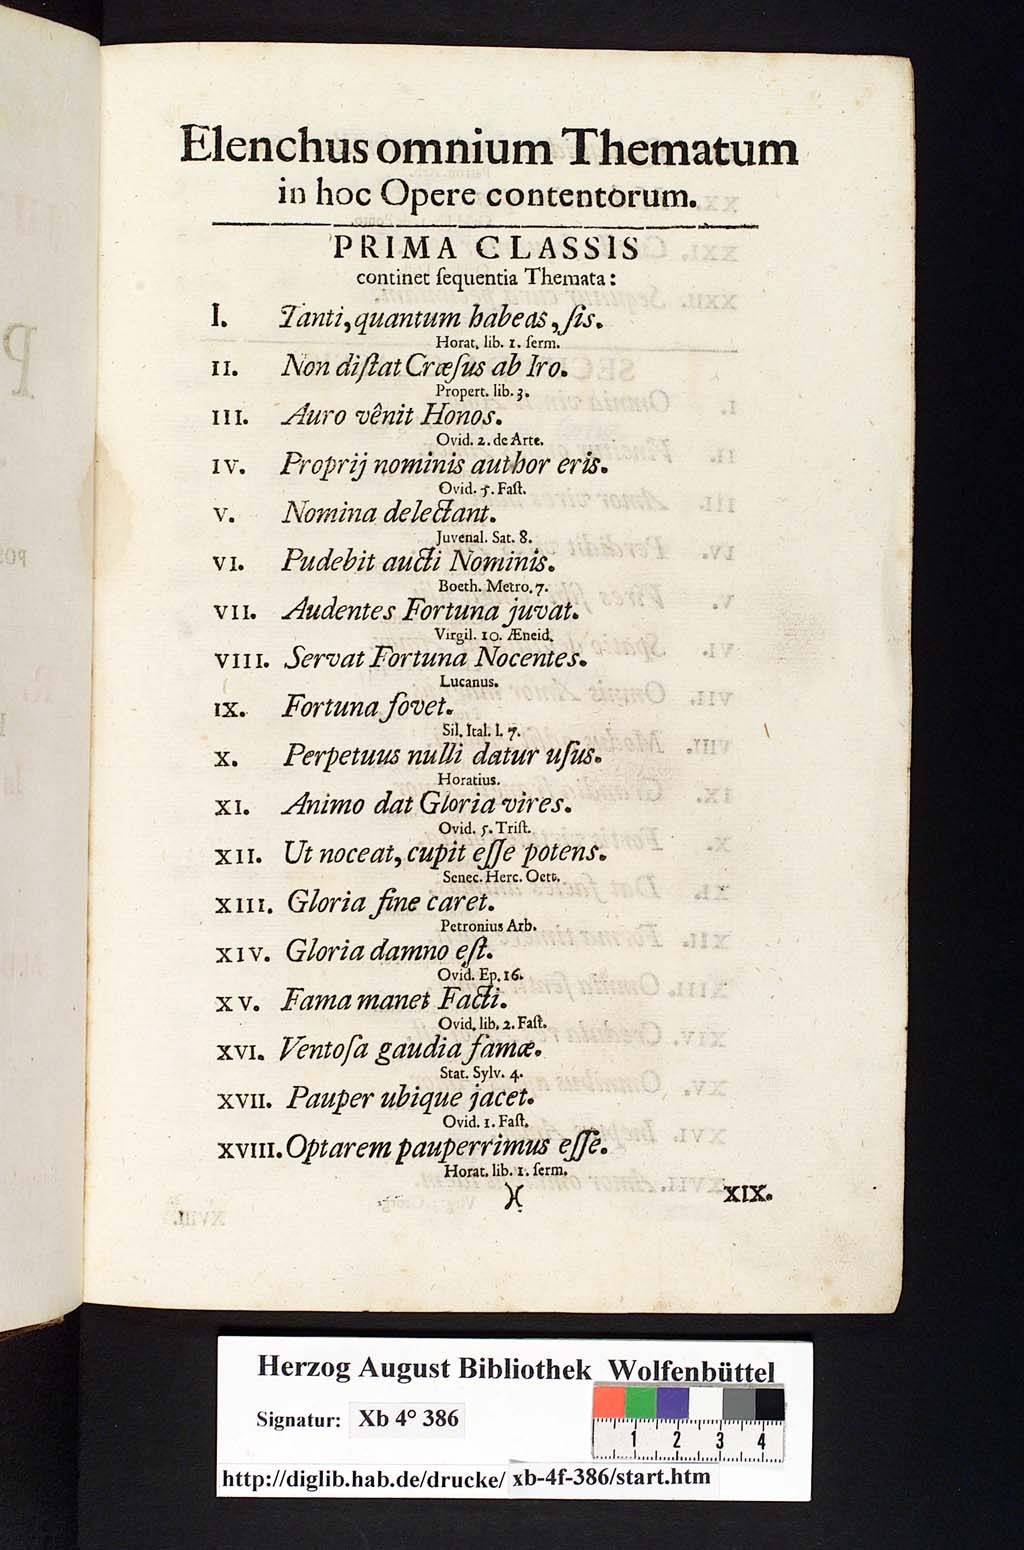 Elenchus omnium Thematum
in hoc Opere contentorum.
PRIMA CLASSIS
continet ſequentia Themata:
I. Tanti, quantum habeas, ſis.
Horat. lib. 1. ſerm.
II. Non diſtat Cræſus ab Iro.
Propert. lib. 3.
III. Auro vênit Honos.
Ovid. 2. de Arte.
IV. Proprij nominis author eris.
Ovid. 5. Faſt.
V. Nomina delectant.
Juvenal. Sat. 8.
VI. Pudebit aucti Nominis.
Boeth. Metro. 7.
VII. Audentes Fortuna juvat.
Virgil. 10. Æneid.
VIII. Servat Fortuna Nocentes.
Lucanus.
IX. Fortuna fovet.
Sil. Ital. l. 7.
X. Perpetuus nulli datur uſus.
Horatius.
XI. Animo dat Gloria vires.
Ovid. 5. Triſt.
XII. Ut noceat, cupit eſſe potens.
Senec. Herc. Oett.
XIII. Gloria fine caret.
Petronius Arb.
XIV. Gloria damno eſt.
Ovid. Ep. 16.
XV. Fama manet Facti.
Ovid. lib. 2. Faſt.
XVI. Ventoſa gaudia famæ.
Stat. Sylv. 4.
XVII. Pauper ubique jacet.
Ovid. 1. Faſt.
XVIII. Optarem pauperrimus eſſe.
Horat. lib. 1. ſerm.
)( XIX.
Herzog August Bibliothek Wolfenbüttel
Signatur: Xb 4° 386
1 2 3 4
http://diglib.hab.de/drucke/ xb-4f-386/start.htm